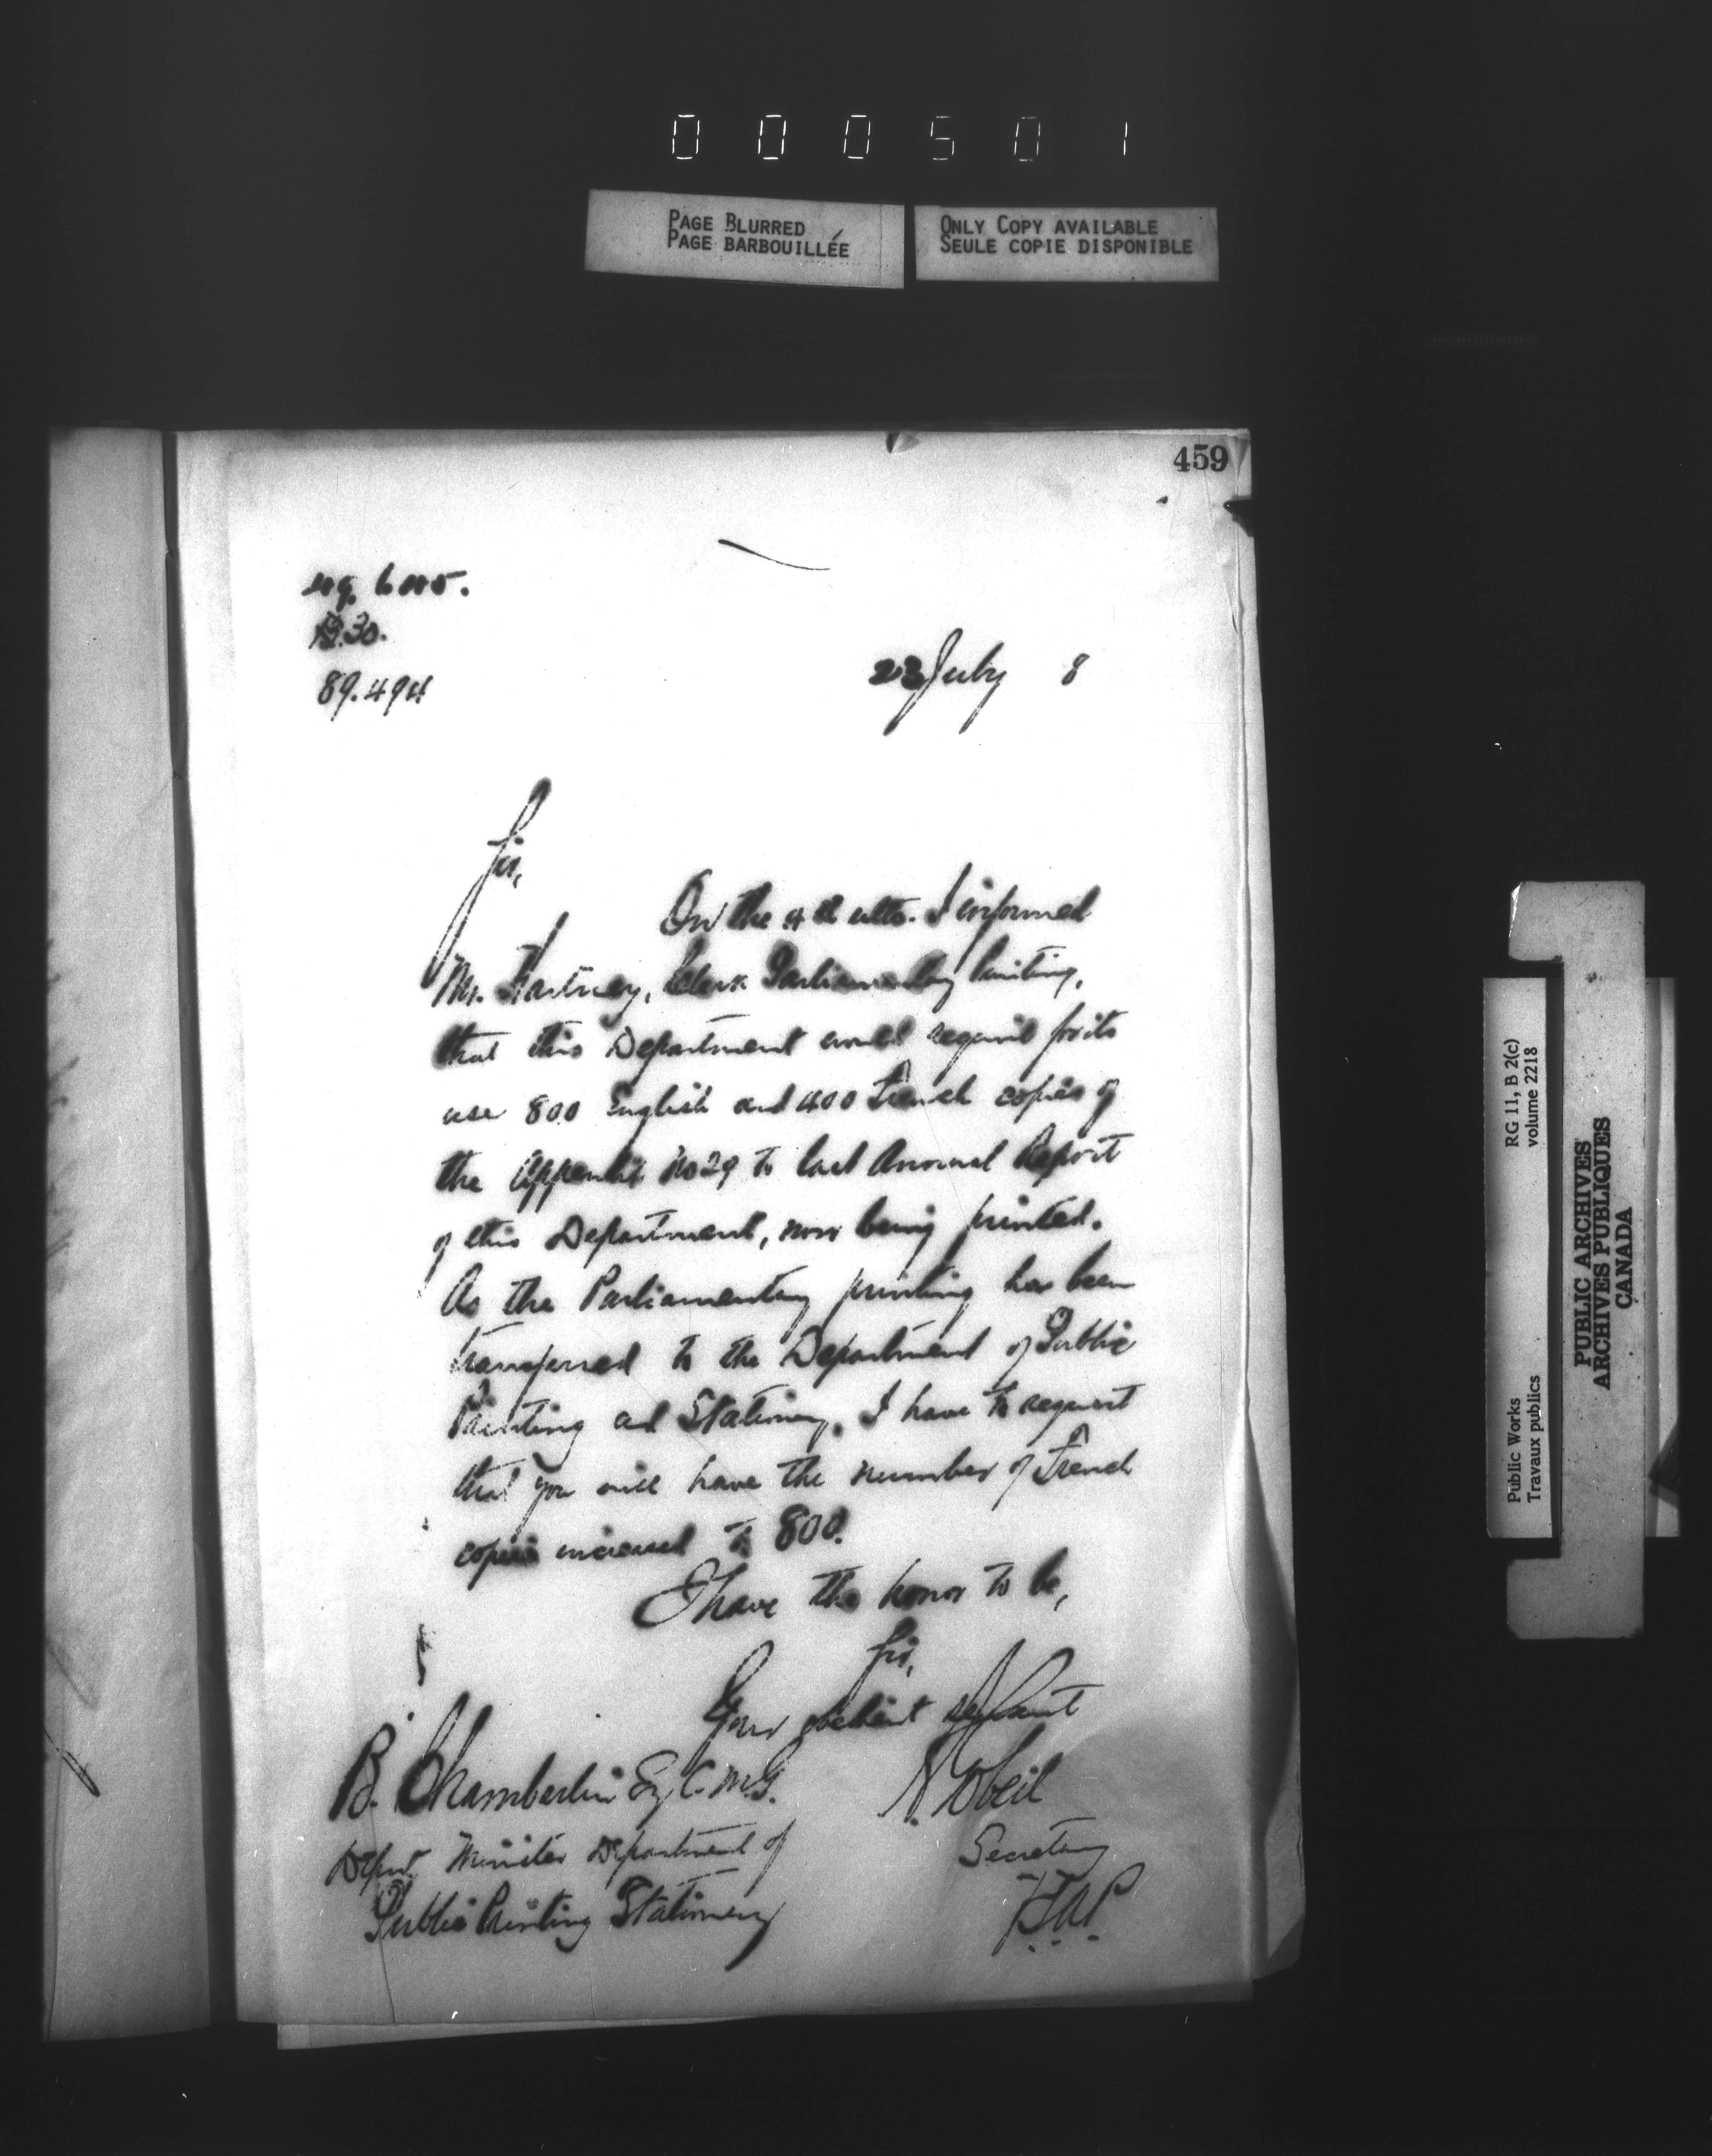 000501
PAGE BLURRED
PAGE BARBOUILLÉE
ONLY COPY AVAILABLE
SEULE COPIE DISPONIBLE
459
30.
89.494
23 July 8
Sir,
On the 4th ulto. I informed
Mr. Hartney, Clerk Parliamentary Printing,
that this Department would require for its
use 800 English and 400 French copies of
the Appendix No 29 to last Annual Report
of this Department, now being printed.
As the Parliamentary printing has been
transferred to the Department of Public
Printing and Stationery, I have to request
that you will have the number of French
copies increased to 800.
I have the honor to be,
Sir,
Your obedient servant
B. Chamberlin Esq C.M.G.
A. Gobeil
Deputy Minister Department of
Secretary
Public Printing Stationery
RG 11, B 2(c)
volume 2218
Public Works
Travaux publics
PUBLIC ARCHIVES
ARCHIVES PUBLIQUES
CANADA